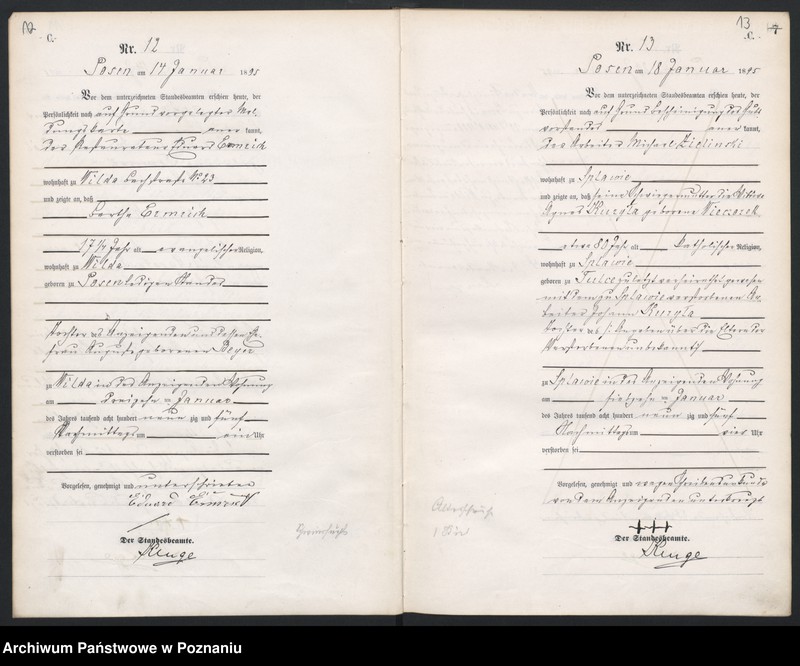 12
C.
Nr. 12
Posen am 14 Januar 1895
Vor dem unterzeichneten Standesbeamten erschien heute, der
Persönlichkeit nach auf Grund vorgelegter Mel
dungskarte aner kannt,
der Restaurateur Eduard Emmrich
wohnhaft zu Wilda Bachstraße No 23
und zeigte an, daß
Bertha Emmrich
17 1/4 Jahr alt evangelischer Religion,
wohnhaft zu Wilda
geboren zu Posen ledigen Standes
Tochter des Anzeigenden und dessen Ehe
frau Auguste geborenen Beyer
zu Wilda in des Anzeigenden Wohnung
am dreizehn ten Januar
des Jahres tausend acht hundert neun zig und fünf
Nachmittags um ein Uhr
verstorben sei
Vorgelesen, genehmigt und unterschrieben
Eduard Emmrich
Der Standesbeamte.
13
C.
Nr. 13
Posen am 18 Januar 1895
Vor dem unterzeichneten Standesbeamten erschien heute, der
Persönlichkeit nach auf Grund Bescheinigung des Guts
vorstandes aner kannt,
der Arbeiter Michael Zielinski
wohnhaft zu Splawie
und zeigte an, daß seine Schwiegermutter die Wittwe
Agnes Kuzyla geborene Wieczorek
etwa 80 Jahr alt katholischer Religion,
wohnhaft zu Splawie
geboren zu Tulce zuletzt verheirathet gewesen
mit dem zu Splawie verstorbenen Ar
beiter Johann Kuzyla
Tochter der /: Angaben über die Eltern der
Verstorbenen unbekannt
zu Splawie in des Anzeigenden Wohnung
am siebzehn ten Januar
des Jahres tausend acht hundert neun zig und fünf
Nachmittags um vier Uhr
verstorben sei
Vorgelesen, genehmigt und wegen Schreibensunkunde
von dem Anzeigenden unterkreuzt
+++
Der Standesbeamte.
Altersschwäche
Archiwum Państwowe w Poznaniu